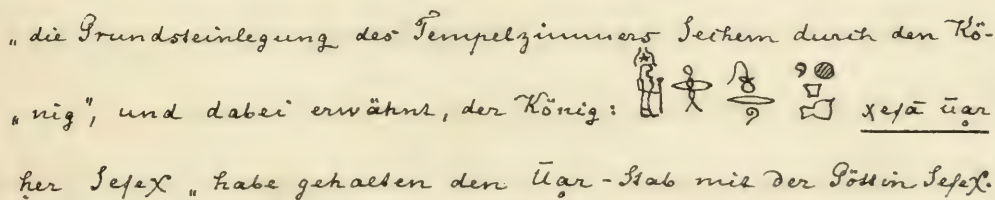 „die Grundsteinlegung des Tempelzimmers Sechem durch den Kö-
„nig”, und dabei erwähnt, der König: χefā ūạr
ḥer Sefeχ „habe gehalten den Ūạr-Stab mit der Göttin Sefeχ.